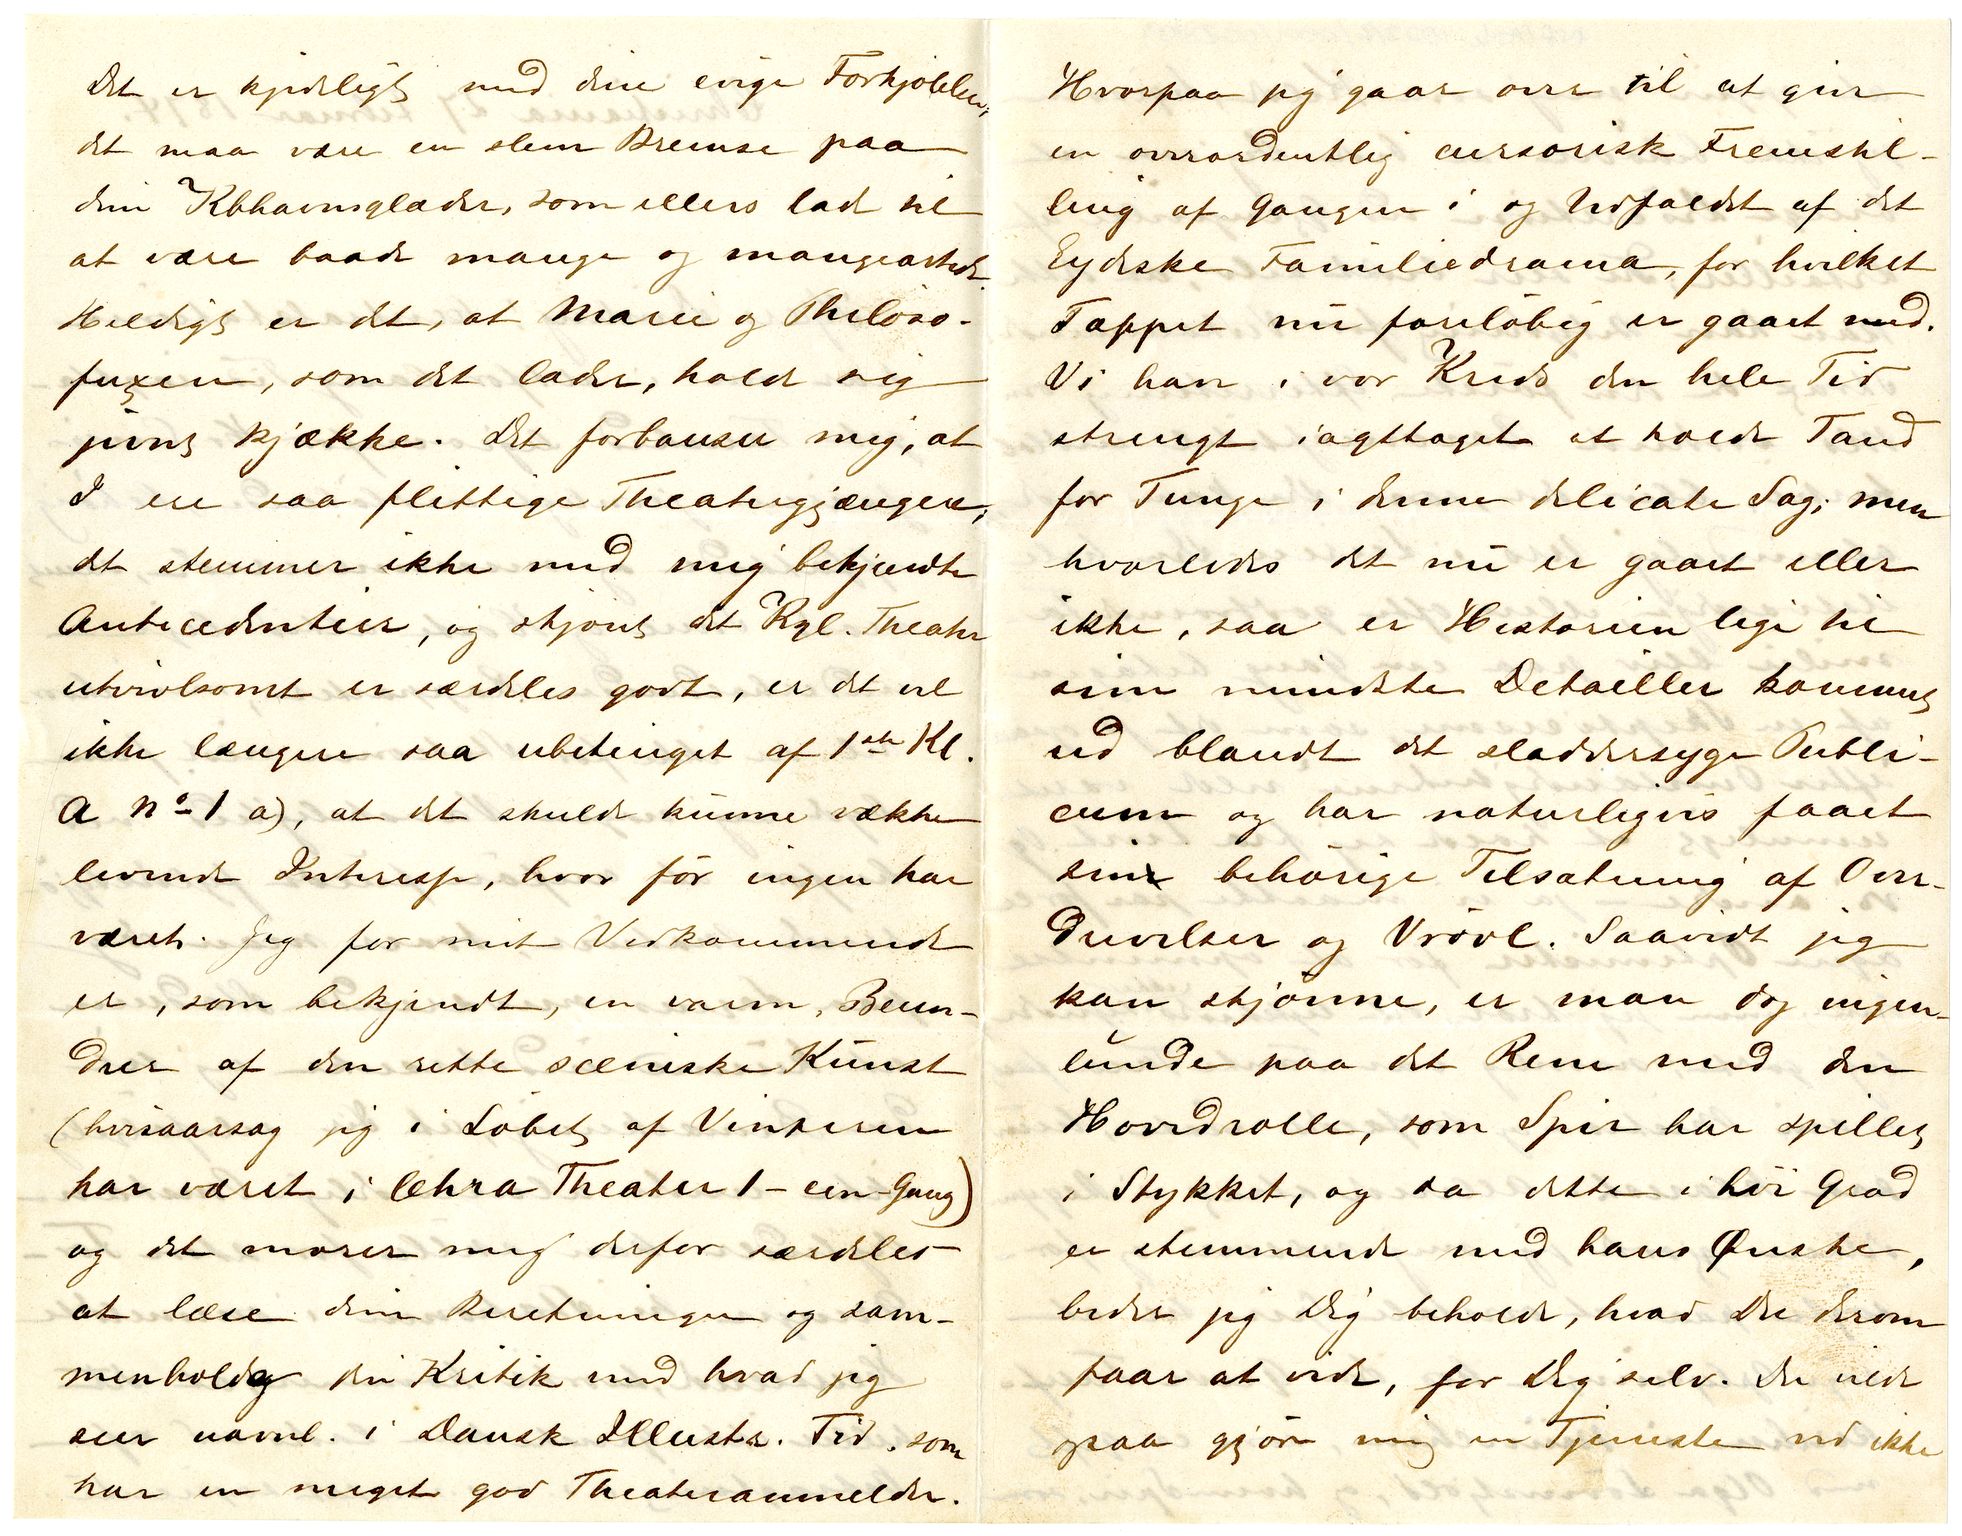 Det er kjedeligt med dine evige Forkjølelser,
det maa være en slem Bremse paa
din Kbhavnsglæder, som ellers lader til
at være baade mange og mangeartede.
Heldigt er det, at Marie og Philoso-
fuxen, som det lader, holde sig
jevnt kjække. Det forbauser mig, at
I ere saa flittige Theatergjængere;
det stemmer ikke med mig bekjendte
Antecedentier, og skjønt det Kgl. Theater
utvivlsomt er særdeles godt, er det vel
ikke længere saa ubetinget af 1ste Kl.
A No 1 a), at det skulde kunne vække
levende Interesse, hvor før ingen har
været. Jeg for mit Vedkommende
er, som bekjendt, en varm Beun-
drer af den rette sceniske Kunst
(hvisaarsag jeg i Løbet af Vinteren
har været i Theater 1 - een - Gang)
og det morer mig derfor særdeles
at læse dine Beretninger og sam-
menholde din Kritik med hvad jeg
seer navnl. i Dansk Illustr. Tid. som
har en meget god Theateranmelder.
Hvorpaa jeg gaar over til at give
en overordentlig cursorisk Fremstil-
ling af Gangen i og Udfaldet af det
Eydeske Familiedrama, for hvilket
Tæppet nu foreløbig er gaaet ned.
Vi have i vor Kreds den hele Tid
strengt iagttaget at holde Tand
for Tunge i denne delicate Sag; men
hvorledes det nu er gaaet eller
ikke, saa er Historien lige til
sine mindste Detailler kommet
ud blandt det sladdersyge Publi-
cum og har naturligvis faaet
sin behørige Tilsætning af Over-
drivelser og Vrøvl. Saavidt jeg
kan skjønne, er man dog ingen-
lunde paa det Rene med den
Hovedrolle, som Spir har spillet
i Stykket, og da dette i høi Grad
er stemmende med hans Ønske,
beder jeg Dig beholde, hvad Du derom
faar at vide, for Dig selv. Du vilde
ogsaa gjøre mig en Tjeneste ved ikke